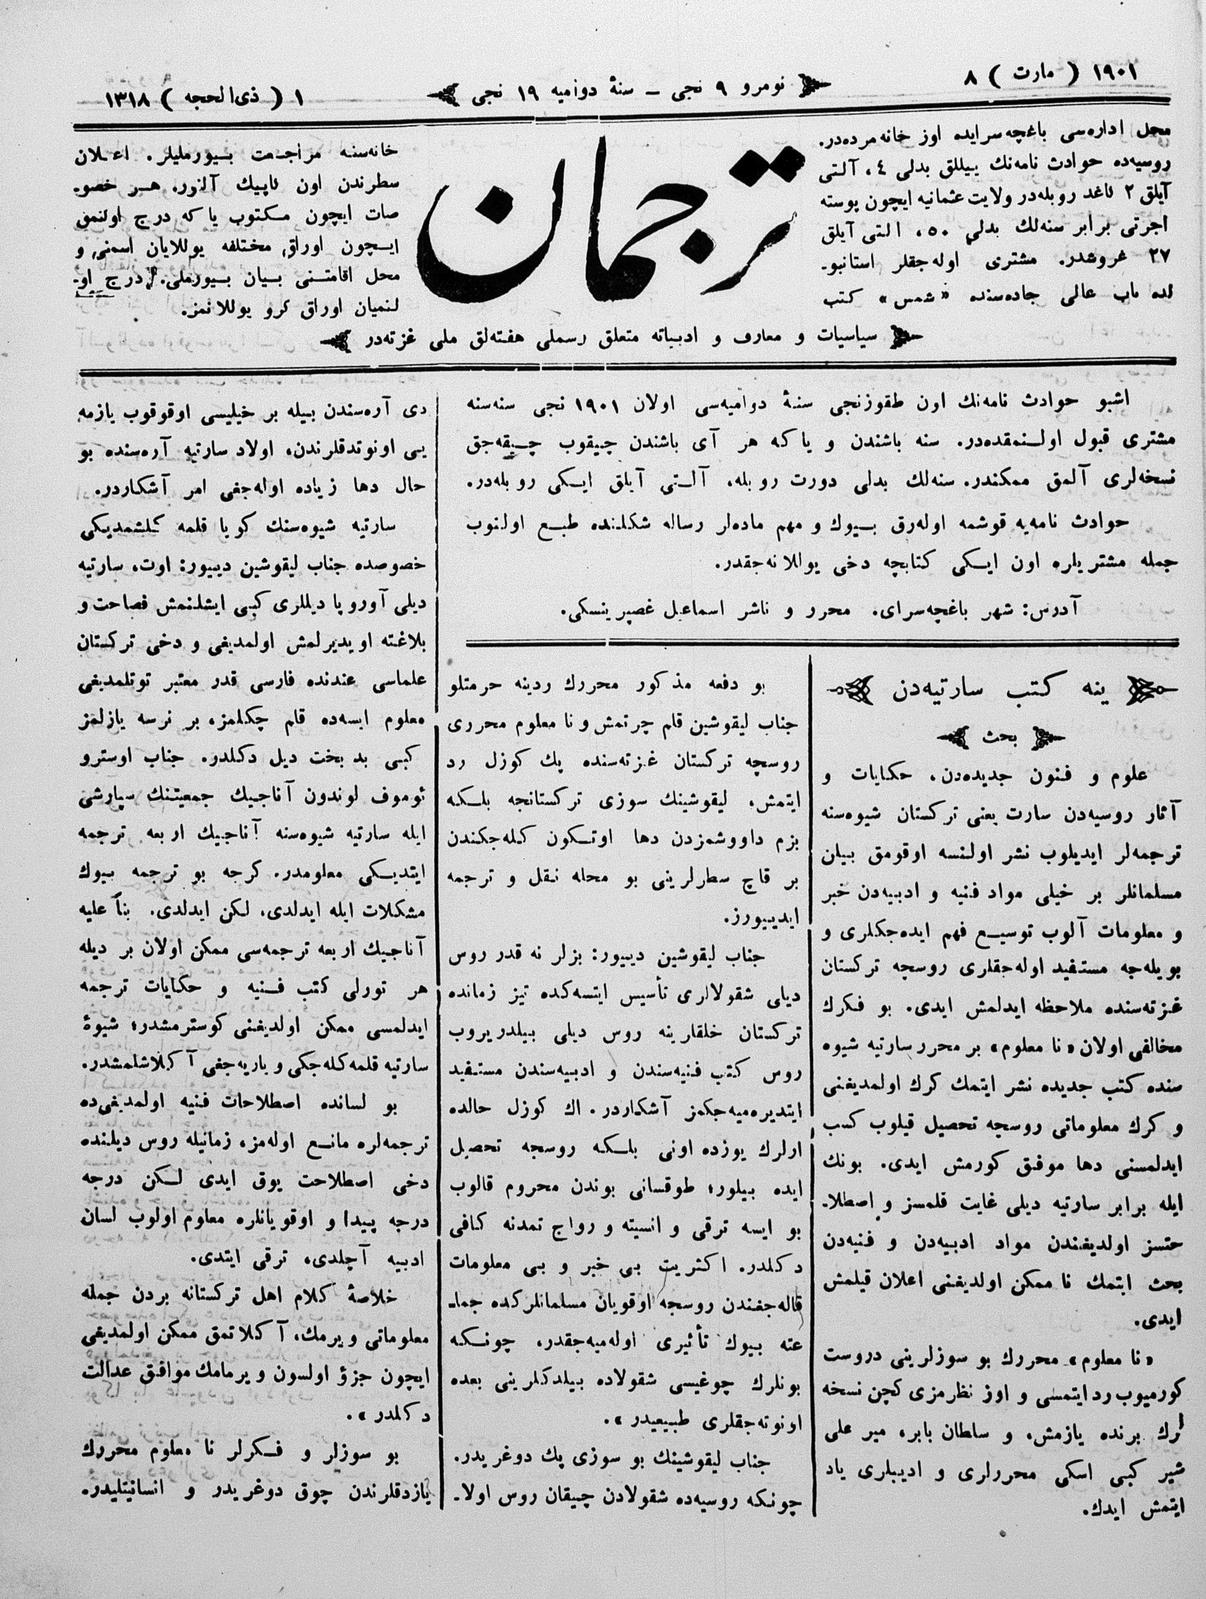 ١٩٠١ ( مارت ) ٨
نومرو ٩ نجی ـ سنهٔ دوامیه ١٩ نجی
١ ( ذی الحجه ) ١٣١٨
محل اداره‌سی باغچه‌سرایده اوز خانه مرده‌در.
روسیه‌ده حوادث نامه‌نك ییللق بدلی ٤، آلتی
آیلق ٢ كاغد روبله‌در ولایت عثمانیه ایچون پوسته
اجرتی برابر سنه‌لك بدلی ٥٠، التی آیلق
٢٧ غروشدر. مشتری اوله‌جقلر استانبو-
لده باب عالی جاده‌سنده «شمس» كتب
ترجمان
خانه‌سنه مراجعت بیورملیلر. اعلان
سطرندن اون كاپیك آلنور. هر خصو-
صات ایچون مكتوب یاكه درج اولنمق
ایچون اوراق مختلفه یوللایان اسمنی و
محل اقامتنی بیان بیورملی. درج او-
لنمیان اوراق كرو یوللانمز.
سیاسیات و معارف و ادبیاته متعلق رسملی هفته‌لق ملی غزته‌در
اشبو حوادث نامه‌نك اون طقوزنجی سنهٔ دوامیه‌سی اولان ١٩٠١ نجی سنه‌سنه
مشتری قبول اولنمقده‌در. سنه باشندن و یاكه هر آی باشندن چیقوب چیقه‌جق
نسخه‌لری آلمق ممكندر. سنه‌لك بدلی دورت روبله، آلتی آیلق ایكی روبله‌در.
حوادث نامه‌یه قوشمه اوله‌رق بیوك و مهم ماده‌لر رساله شكلنده طبع اولنوب
جمله مشتریلره اون ایكی كتابچه دخی یوللانه‌جقدر.
آدرس: شهر باغچه‌سرای. محرر و ناشر اسماعیل غصپرینسكی.
ینه كتب سارتیه‌دن
بحث
علوم و فنون جدیده‌دن، حكایات و
آثار روسیه‌دن سارت یعنی تركستان شیوه‌سنه
ترجمه‌لر ایدیلوب نشر اولنسه اوقومق بیلن
مسلمانلر بر خیلی مواد فنیه و ادبیه‌دن خبر
و معلومات آلوب توسیع فهم ایده‌جكلری و
بویله‌جه مستفید اوله‌جقلری روسچه تركستان
غزته‌سنده ملاحظه ایدلمش ایدی. بو فكرك
مخالفی اولان «نا معلوم» بر محرر سارتیه شیوه
سنده كتب جدیده نشر ایتمك كرك اولمدیغنی
و كرك معلوماتی روسچه تحصیل قیلوب كسب
ایدلمسنی دها موفق كورمش ایدی. بونك
ایله برابر سارتیه دیلی غایت قلمسز و اصطلا-
حتسز اولدیغندن مواد ادبیه‌دن و فنیه‌دن
بحث ایتمك نا ممكن اولدیغنی اعلان قیلمش
ایدی.
«نا معلوم» محررك بو سوزلرینی دروست
كورمیوب رد ایتمسی و اوز نظرمزی كچن نسخه
لرك برنده یازمش، و سلطان بابر، میر علی
شیر كبی اسكی محررلری و ادیبلری یاد
ایتمش ایدك.
بو دفعه مذكور محررك ردینه حرمتلو
جناب لیقوشین قلم چرتمش و نا معلوم محرری
روسچه تركستان غزته‌سنده پك كوزل رد
ایتمش، لیقوشینك سوزی تركستانجه بلكه
بزم داووشمزدن دها اوتكون كله‌جكندن
بر قاچ سطرلرینی بو محله نقل و ترجمه
ایدییورز.
جناب لیقوشین دییور: بزلر نه قدر روس
دیلی شقولالری تأسیس ایتسه‌كده تیز زمانده
تركستان خلقلرینه روس دیلی بیلدریروب
روس كتب فنیه‌سندن و ادبیه‌سندن مستفید
ایتدیره‌میه‌جكمز آشكاردر. اك كوزل حالده
ارلرك یوزده اونی بلكه روسچه تحصیل
ایده بیلور؛ طوقسانی بوندن محروم قالوب
بو ایسه ترقی و انسیته و رواج تمدنه كافی
دكلدر. اكثریت بی خبر و بی معلومات
قاله‌جغندن روسچه اوقویان مسلمانلركده جما-
عته بیوك تأثیری اوله‌میه‌جقدر، چونكه
بونلرك چوغیسی شقولاده بیلدكلرینی بعده
اونوته‌جقلری طبیعیدر».
جناب لیقوشینك بو سوزی پك دوغریدر.
چونكه روسیه‌ده شقولادن چیقان روس اولا-
دی آره‌سندن بیله بر خیلیسی اوقوقوب یازمه
یی اونوتدقلرندن، اولاد سارتیه آره‌سنده بو
حال دها زیاده اوله‌جغی امر آشكاردر.
سارتیه شیوه‌سنك كویا قلمه كلشمدیكی
خصوصده جناب لیقوشین دییور: اوت، سارتیه
دیلی آوروپا دیللری كبی ایشلنمش فصاحت و
بلاغته اویدیرلمش اولمدیغی و دخی تركستان
علماسی عندنده فارسی قدر معتبر توتلمدیغی
معلوم ایسه‌ده قلم چكلمز، بر نرسه یازلمز
كبی بد بخت دیل دكلدر. جناب اوسترو
ئوموف لوندون آناجیك جمعیتنك سپارشی
ایله سارتیه شیوه‌سنه آناجیك اربعه ترجمه
ایتدیكی معلومدر. كرچه بو ترجمه بیوك
مشكلات ایله ایدلدی، لكن ایدلدی. بنأ علیه
آناجیك اربعه ترجمه‌سی ممكن اولان بر دیله
هر تورلی كتب فنیه و حكایات ترجمه
ایدلمسی ممكن اولدیغنی كوسترمشدر؛ شیوهٔ
سارتیه قلمه كله‌جكی و یاریه‌جغی آكلاشلمشدر.
بو لسانده اصطلاحات فنیه اولمدیغی‌ده
ترجمه‌لره مانع اوله‌مز، زمانیله روس دیلنده
دخی اصطلاحت یوق ایدی لكن درجه
درجه پیدا و اوقویانلره معلوم اولوب لسان
ادبیه آچلدی، ترقی ایتدی.
خلاصهٔ كلام اهل تركستانه بردن جمله
معلوماتی ویرمك، آكلاتمق ممكن اولمدیغی
ایچون جزؤ اولسون ویرمامك موافق عدالت
دكلدر».
بو سوزلر و فكرلر نا معلوم محررك
یازدقلرندن چوق دوغریدر و انسانیتلیدر.